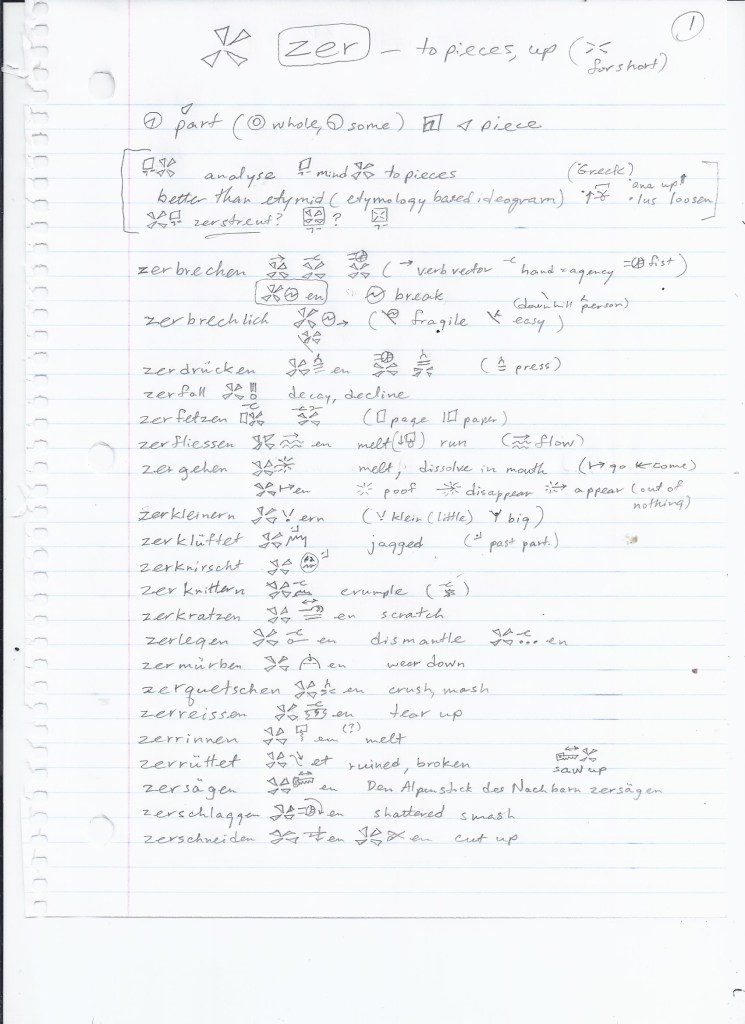 1
zer — to pieces, up ( for short)
part ( whole, some) piece
analyse mind to pieces (Greek)
better than etymid (etymology based ideogram) ana up
lus loosen
zerstreut? ?
zerbrechen ( → verb vector hand = agency fist)
en break
(downhill person)
zerbrechlich ( fragile easy)
zerdrücken en ( press)
zerfall decay, decline
zerfetzen ( page paper)
zerfliessen en melt ( ) run ( flow)
zergehen melt, dissolve in mouth ( ↦ go come)
en poof disappear appear (out of nothing)
zerkleinern ern ( klein (little) big)
zerklüftet jagged ( past part.)
zerknirscht
zerknittern crumple ( )
zerkratzen en scratch
zerlegen en dismantle ... en
zermürben en wear down
zerquetschen en crush, mash
zerreissen en tear up
zerrinnen en (?) melt
zerrüttet et ruined, broken
saw up
zersägen en Den Alpenstick des Nachbarn zersägen
zerschlaggen en shattered smash
zerschneiden en en cut up